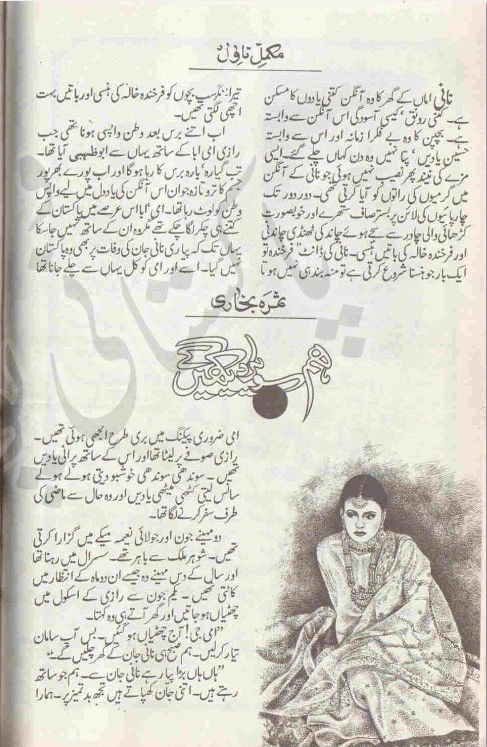 مکمل ناول
نانی اماں کے گھر کا وہ آنگن کتنی یادوں کا مسکن
ہے۔ کتنی رونق، کیسی آسودگی اس آنگن سے وابستہ
ہے۔ بچپن کا وہ بے فکرا زمانہ اور اس سے وابستہ
حسین یادیں، پتا نہیں وہ دن کہاں چلے گئے۔ ایسی
مزے کی نیند پھر نصیب نہیں ہوئی جو نانی کے آنگن
میں گرمیوں کی راتوں کو آیا کرتی تھی۔ دور دور تک
چارپائیوں کی لائن پر بستر صاف ستھرے اور خوبصورت
کڑھائی والی چادر سے سجے ہوئے چاند کی ٹھنڈی چاندنی
اور فرخندہ خالہ کی باتیں، ہنسی۔ نانی کی ڈانٹ "فرخندہ تو
ایک بار جو ہنسنا شروع کرتی ہے تو منہ بند ہی نہیں ہوتا
تیرا۔" مگر سب بچوں کو فرخندہ خالہ کی ہنسی اور باتیں بہت
اچھی لگتی تھیں۔
اب اتنے برس بعد وطن واپسی ہونا تھی جب
رازی امی ابا کے ساتھ یہاں سے ابوظہبی آیا تھا۔
تب گیارہ بارہ برس کا رہا ہو گا اور اب پورے بھرپور
جسم کا تروتازہ جوان اس آنگن کی یاد دل میں لیے واپس
وطن کو لوٹ رہا تھا۔ امی ابا اس عرصے میں پاکستان کے
کتنے ہی چکر لگا چکے تھے مگر وہ ان کے ساتھ نہیں جا سکا
یہاں تک کہ پیاری نانی جان کی وفات پر بھی وہ پاکستان
نہیں گیا۔ اسے اور امی کو کل یہاں سے چلے جانا تھا
ثمرہ بخاری
ہم سویرا دیکھیں گے
امی ضروری پیکنگ میں بری طرح الجھی ہوئی تھیں۔
رازی صوفے پر لیٹا تھا اور اس کے ساتھ پرانی یادیں
تھیں۔ سوندھی سوندھی خوشبو دیتی ہوئے ہولے
سانس لیتی کٹھی میٹھی یادیں اور وہ حال سے ماضی کی
طرف سفر کرنے لگا تھا۔
دو مہینے جون اور جولائی نعیمہ میکے میں گزارا کرتی
تھیں۔ شوہر ملک سے باہر تھے۔ سسرال میں رہنا تھا
اور سال کے دس مہینے وہ جیسے ان دو ماہ کے انتظار میں
کاٹتی تھیں۔ یکم جون سے رازی کے اسکول میں
چھٹیاں ہو جاتیں اور گھر آتے ہی وہ کہتا۔
"امی جی! آج چھٹیاں ہو گئیں۔ بس آپ سامان
تیار کرلیں۔ ہم صبح ہی نانی جان کے گھر چلیں گے۔"
"ہاں ہاں بڑا پیار ہے نانی جان سے۔ ہم جو ساتھ
رہتے ہیں۔ اتنی جان کھپاتے ہیں تجھ بدتمیز پر۔ ہمارا